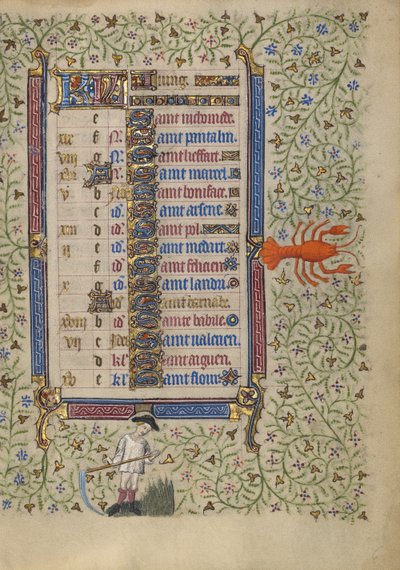 KL Juing
e saint nichomede.
xix f N. saint pantalin.
viii g N. saint lieffart.
xvi A N. saint marcel.
v b No saint boniface.
c id saint arsene.
xiii d id saint pol.
ii e id saint medart.
f id saint felicien
x g id saint landri
A id saint barnabe.
xviii b id sainte babile.
vii c id saint valerien.
d kl saint aignen.
xv e kl saint flour.